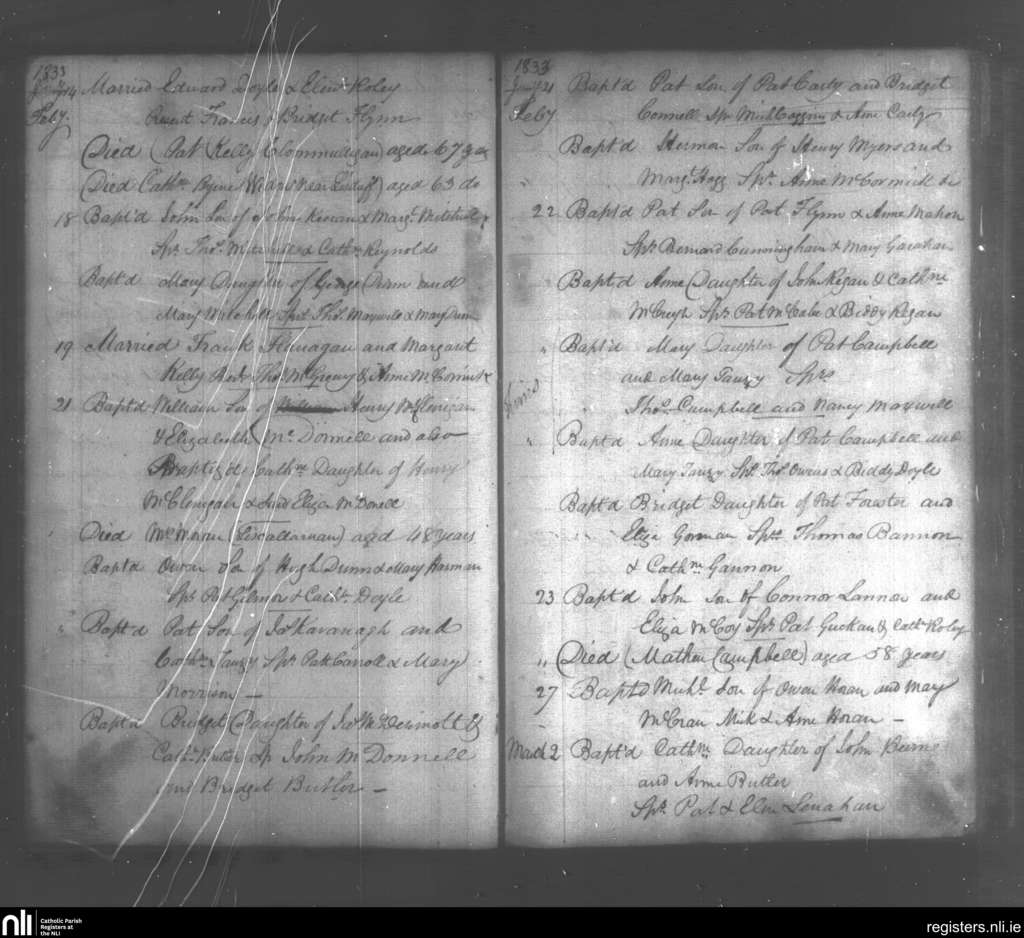 1833
14 Married Edward Doyle & Elinr Roley
Feby. Francis & Bridget Flynn
(Died (Pat Kelly Clonmulligan) aged 67
(Died Cathn Byrne near aged 63 do
18 Bapt'd John Son of John Kiernan & Margt Mitchell
Sprs Thos. & Cathn Reynolds
Bapt'd Mary Daughter of George Dunn and
Mary Mitchell Sprs Thos. Maxwell & Mary Dunn
19 Married Frank Flanagan and Margaret
Kelly Thos McGreevy & Anne McCormick
21 Bapt'd William Son of Henry McClenigan
& Elizabeth Mc.Donnell and also
Baptiz'd Cathne Daughter of Henry
McClenigan & Eliza McDonell
Died Moran aged 48 years
Bapt'd Owen Son of Hugh Dunn & Mary Harman
Sprs Pat Gilmor & Cathn. Doyle
" Bapt'd Pat Son of Jas Kavanagh and
Cathn Tanzy Sprs Patk Carroll & Mary
Morrison —
Bapt'd Bridget Daughter of McDermott &
Cathn Butler Sp John McDonnell
and Bridget Butler —
1833
21 Bapt'd Pat Son of Pat Carty and Bridget
Feby Connell Sprs Michl & Anne Carty
Bapt'd Herman Son of Henry Myers and
Margt. Hogg Spr. Anne McCormick
22 Bapt'd Pat Son of Pat Flynn & Anne Mahon
Sprs Bernard Cunningham & Mary Garahan
" Bapt'd Anne Daughter of John Regan & Cathne
McHugh Sprs Pat McCabe & Biddy Regan
" Bapt'd Mary Daughter of Pat Campbell
and Mary Tanzy Sprs
Thos. Campbell and Nancy Maxwell
" Bapt'd Anne Daughter of Pat Campbell and
Mary Tanzy Sprs Thos Owens & Biddy Doyle
Bapt'd Bridget Daughter of Pat Forster and
Eliza Gorman Sprs Thomas Bannon
& Cathne Gannon
23 Bapt'd John Son of Connor Lannon and
Eliza McCoy Sprs Pat Guckan & Cathn Roley
" (Died (Mathew Campbell) aged 58 years
27 Bapt'd Michl. Son of Owen Horan and Mary
McCran Mick & Anne Horan —
March 2 Bapt'd Cathne Daughter of John Beirne
and Anne Butler
Sprs Pat & Elinr Lenahan
nli
Catholic Parish
Registers at
the NLI
registers.nli.ie